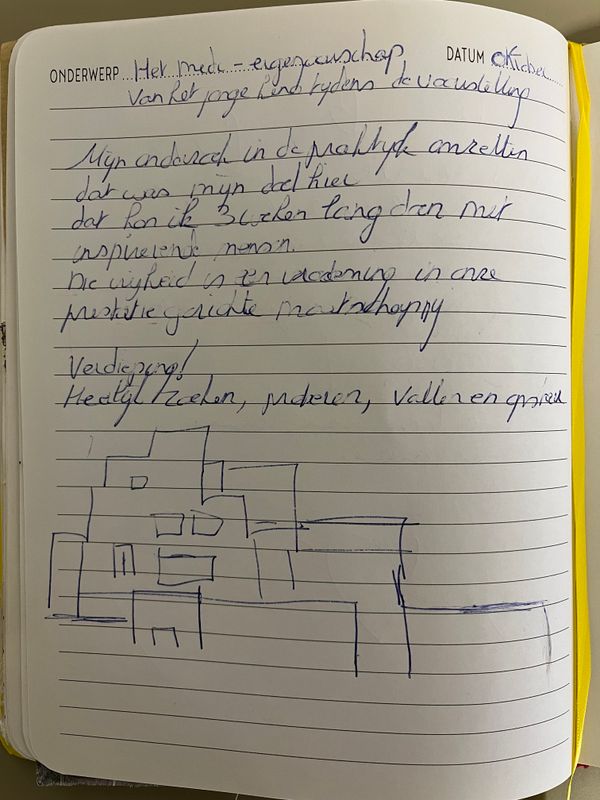 ONDERWERP Het mede-eigenaarschap DATUM oktober
van het jonge kind tijdens de voorstelling
Mijn onderzoek in de praktijk omzetten
dat was mijn doel hier
dat kon ik 3 weken lang doen met
inspirerende mensen.
Die vrijheid is een verademing in onze
prestatie gerichte maatschappij
Verdieping!
Heerlijk zoeken, proberen, vallen en opstaan